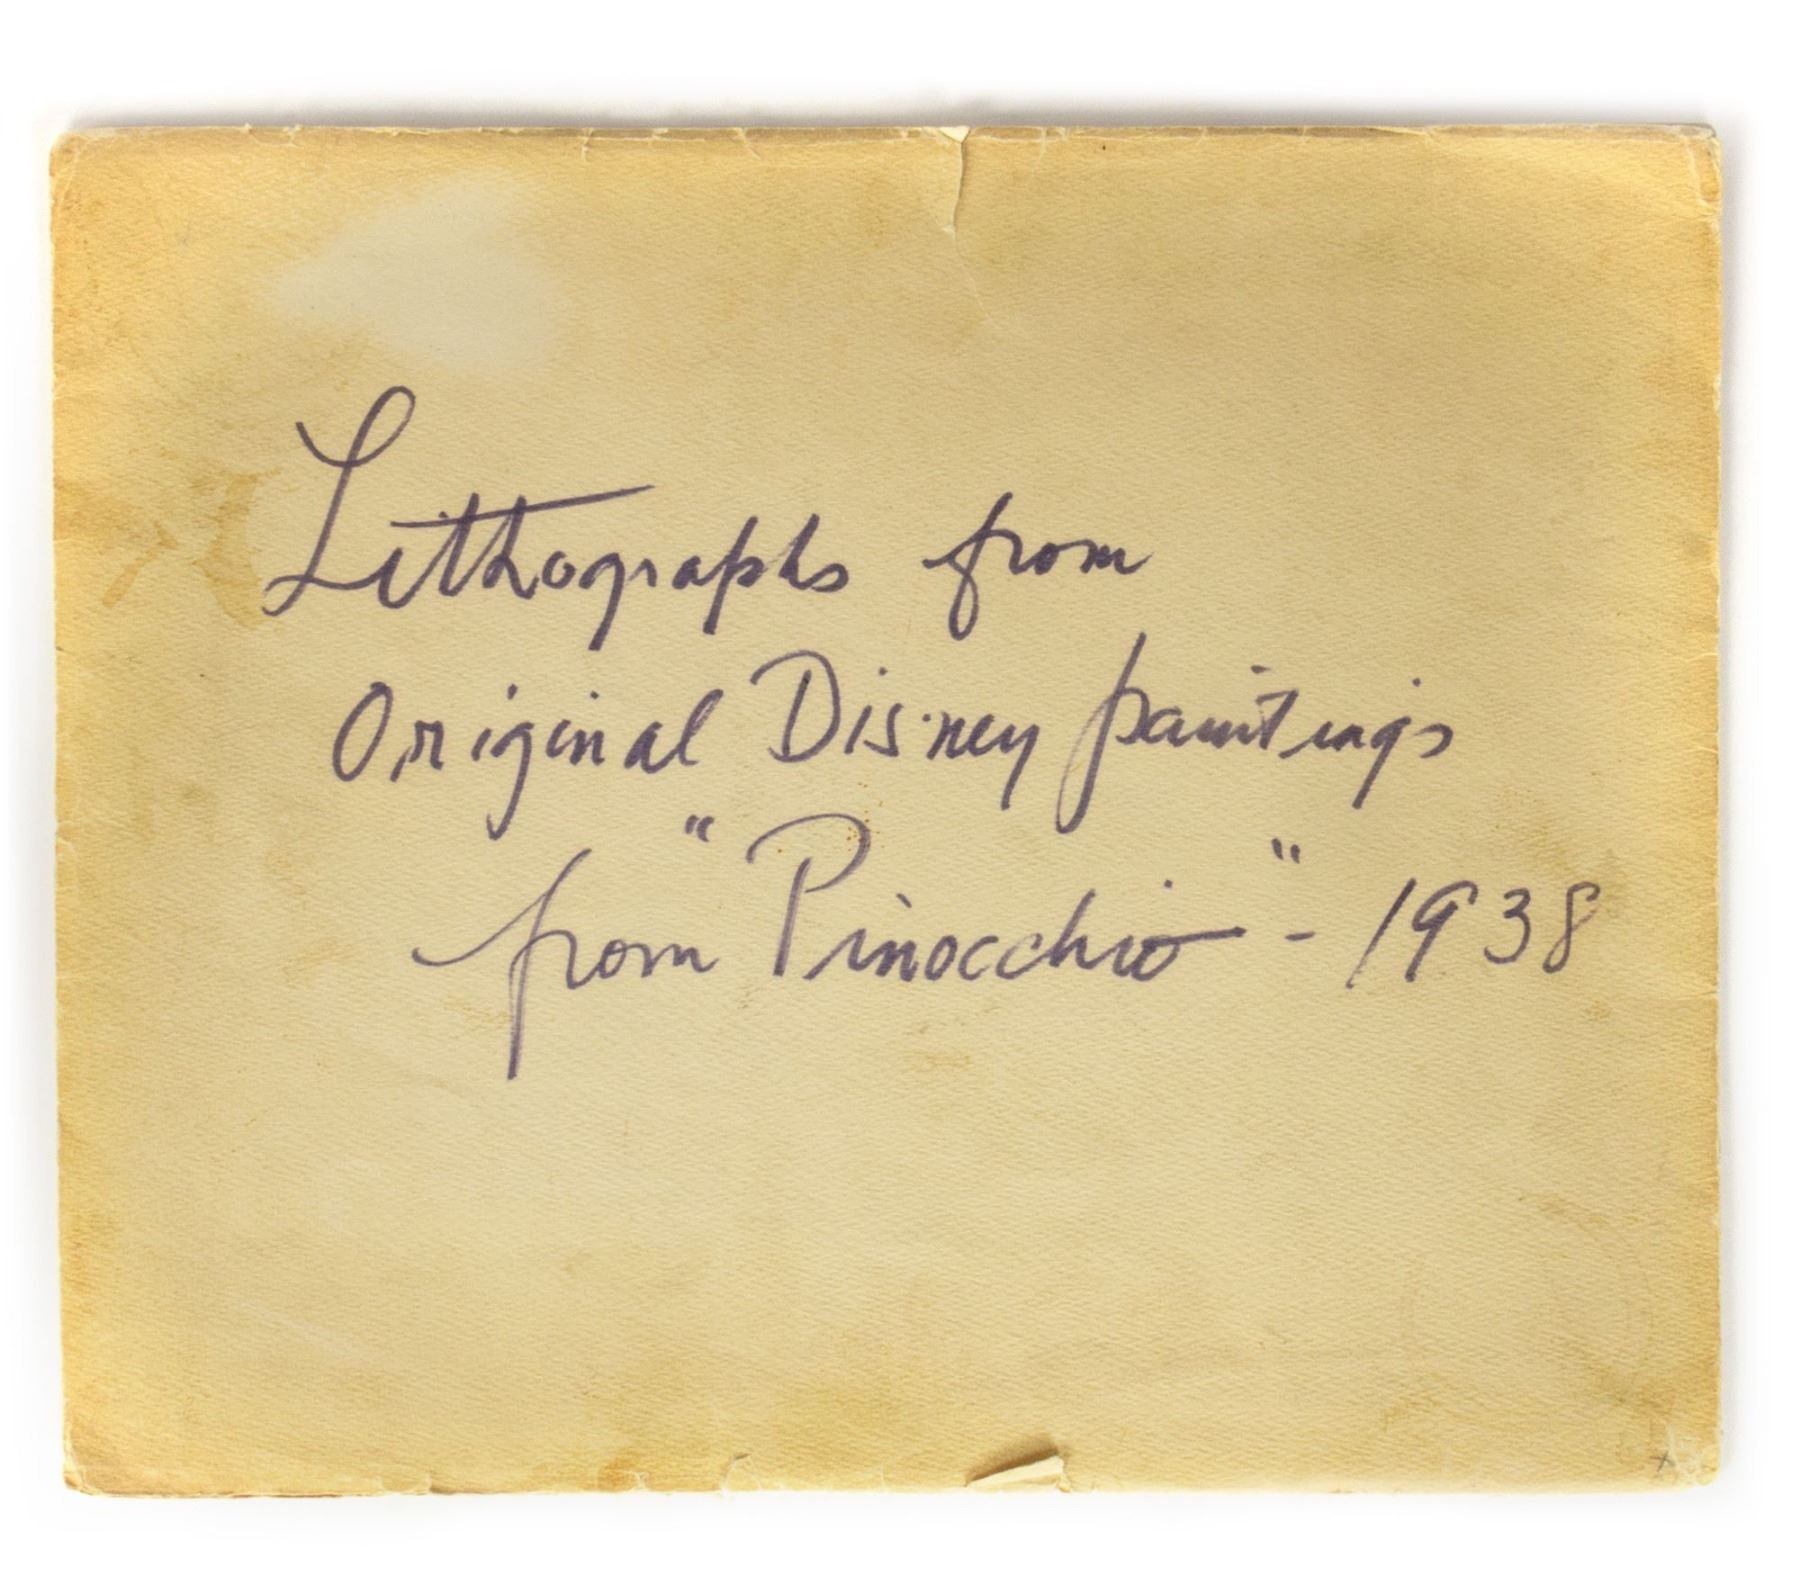 Lithographs from
Original Disney paintings
from "Pinocchio" - 1938